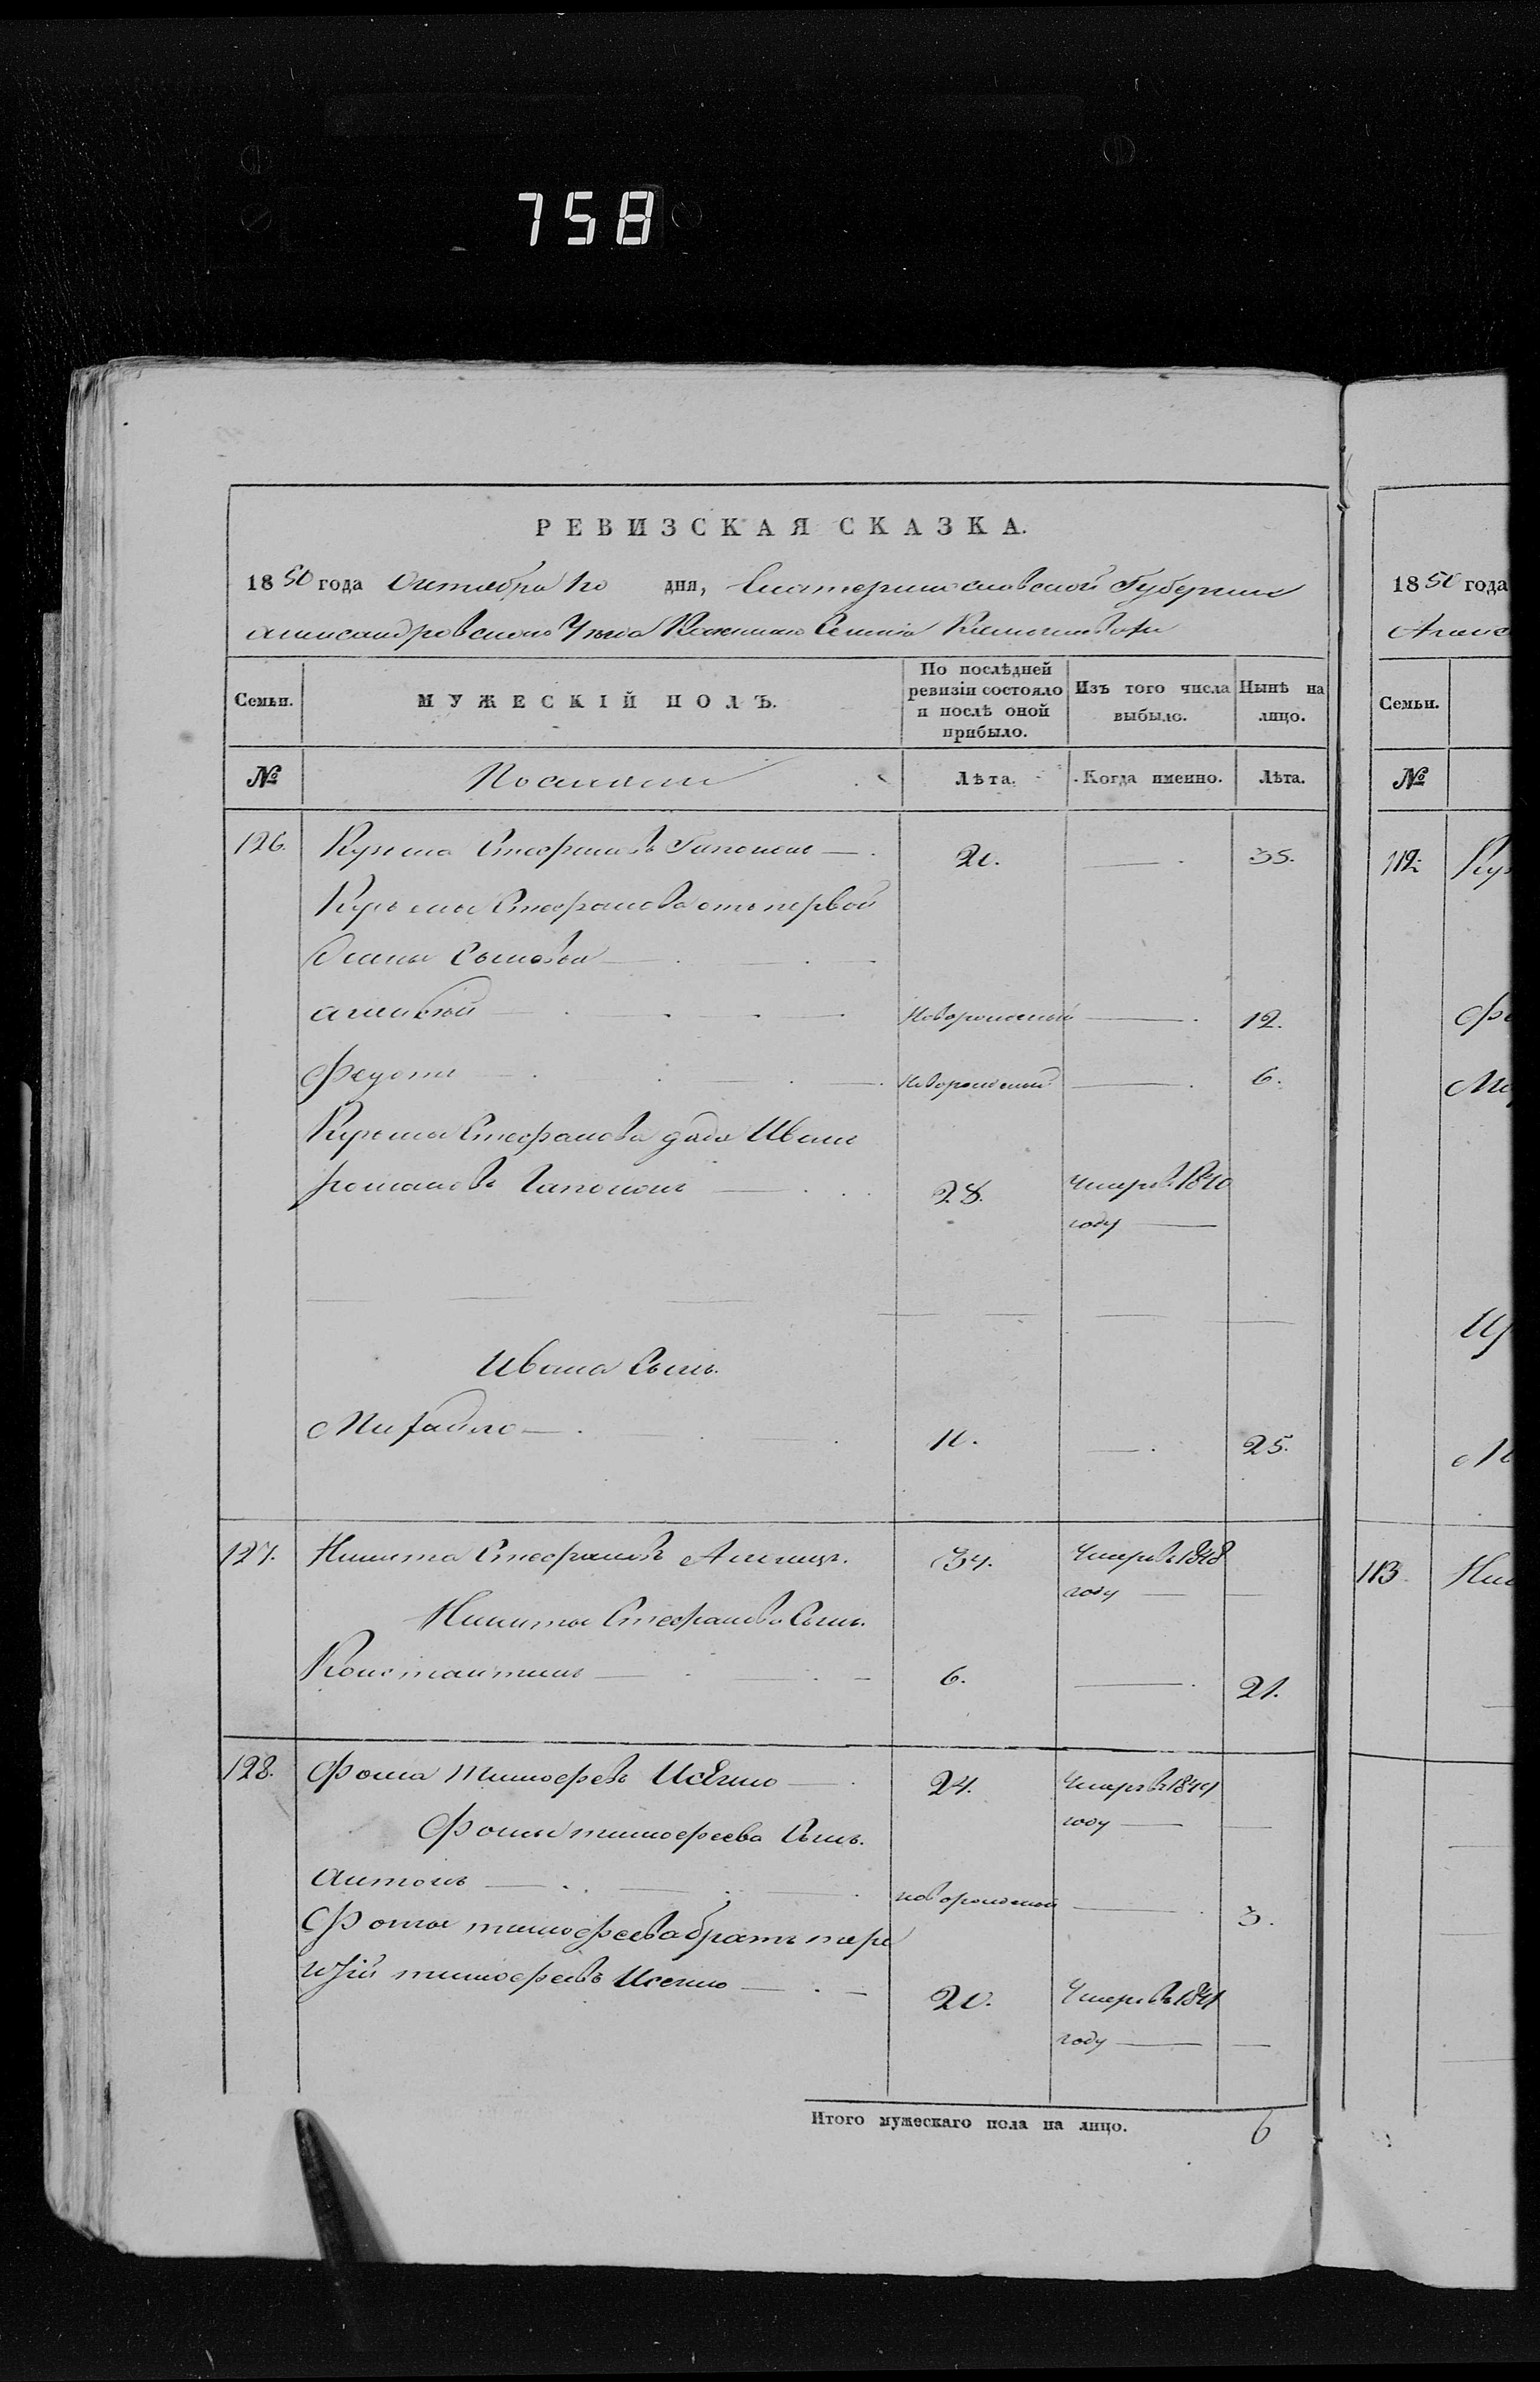 758
РЕВИЗСКАЯ СКАЗКА.
1850 года Октября 10 дня, Екатеринославской Губернии
Александровского Уезда Казенного Селения
Семьи. МУЖЕСКІЙ ПОЛЪ. По послѣдней ревизіи состояло и послѣ оной прибыло. Изъ того числа выбыло. Нынѣ на лицо.
№ Лѣта. Когда именно. Лѣта.
126. Кузьма Стефановъ Гапононъ 20. 35.
Кузьмы Стефанова отъ первой
Жены Сыновья
Алексѣй Новорожденный 12.
Федотъ Новорожденный 6.
Кузьмы Стефанова дядя Иванъ
Романовъ Гапононъ 28. Умеръ в 1840
году
Ивана Сынъ.
Михайло 10. 25.
127. Никита Стефановъ 34. Умеръ в 1848
году
Никиты Стефанова Сынъ.
Константинъ 6. 21.
128. Фома Тимофеевъ 24. Умеръ в 1849
году
Фомы Тимофеева Сынъ.
Антонъ новорожденный 3.
Фомы Тимофеева братъ Тере
нтій Тимофеевъ 20. Умеръ в 1841
году
Итого мужескаго пола на лицо. 6
1850 года
Семьи.
№
112.
113.